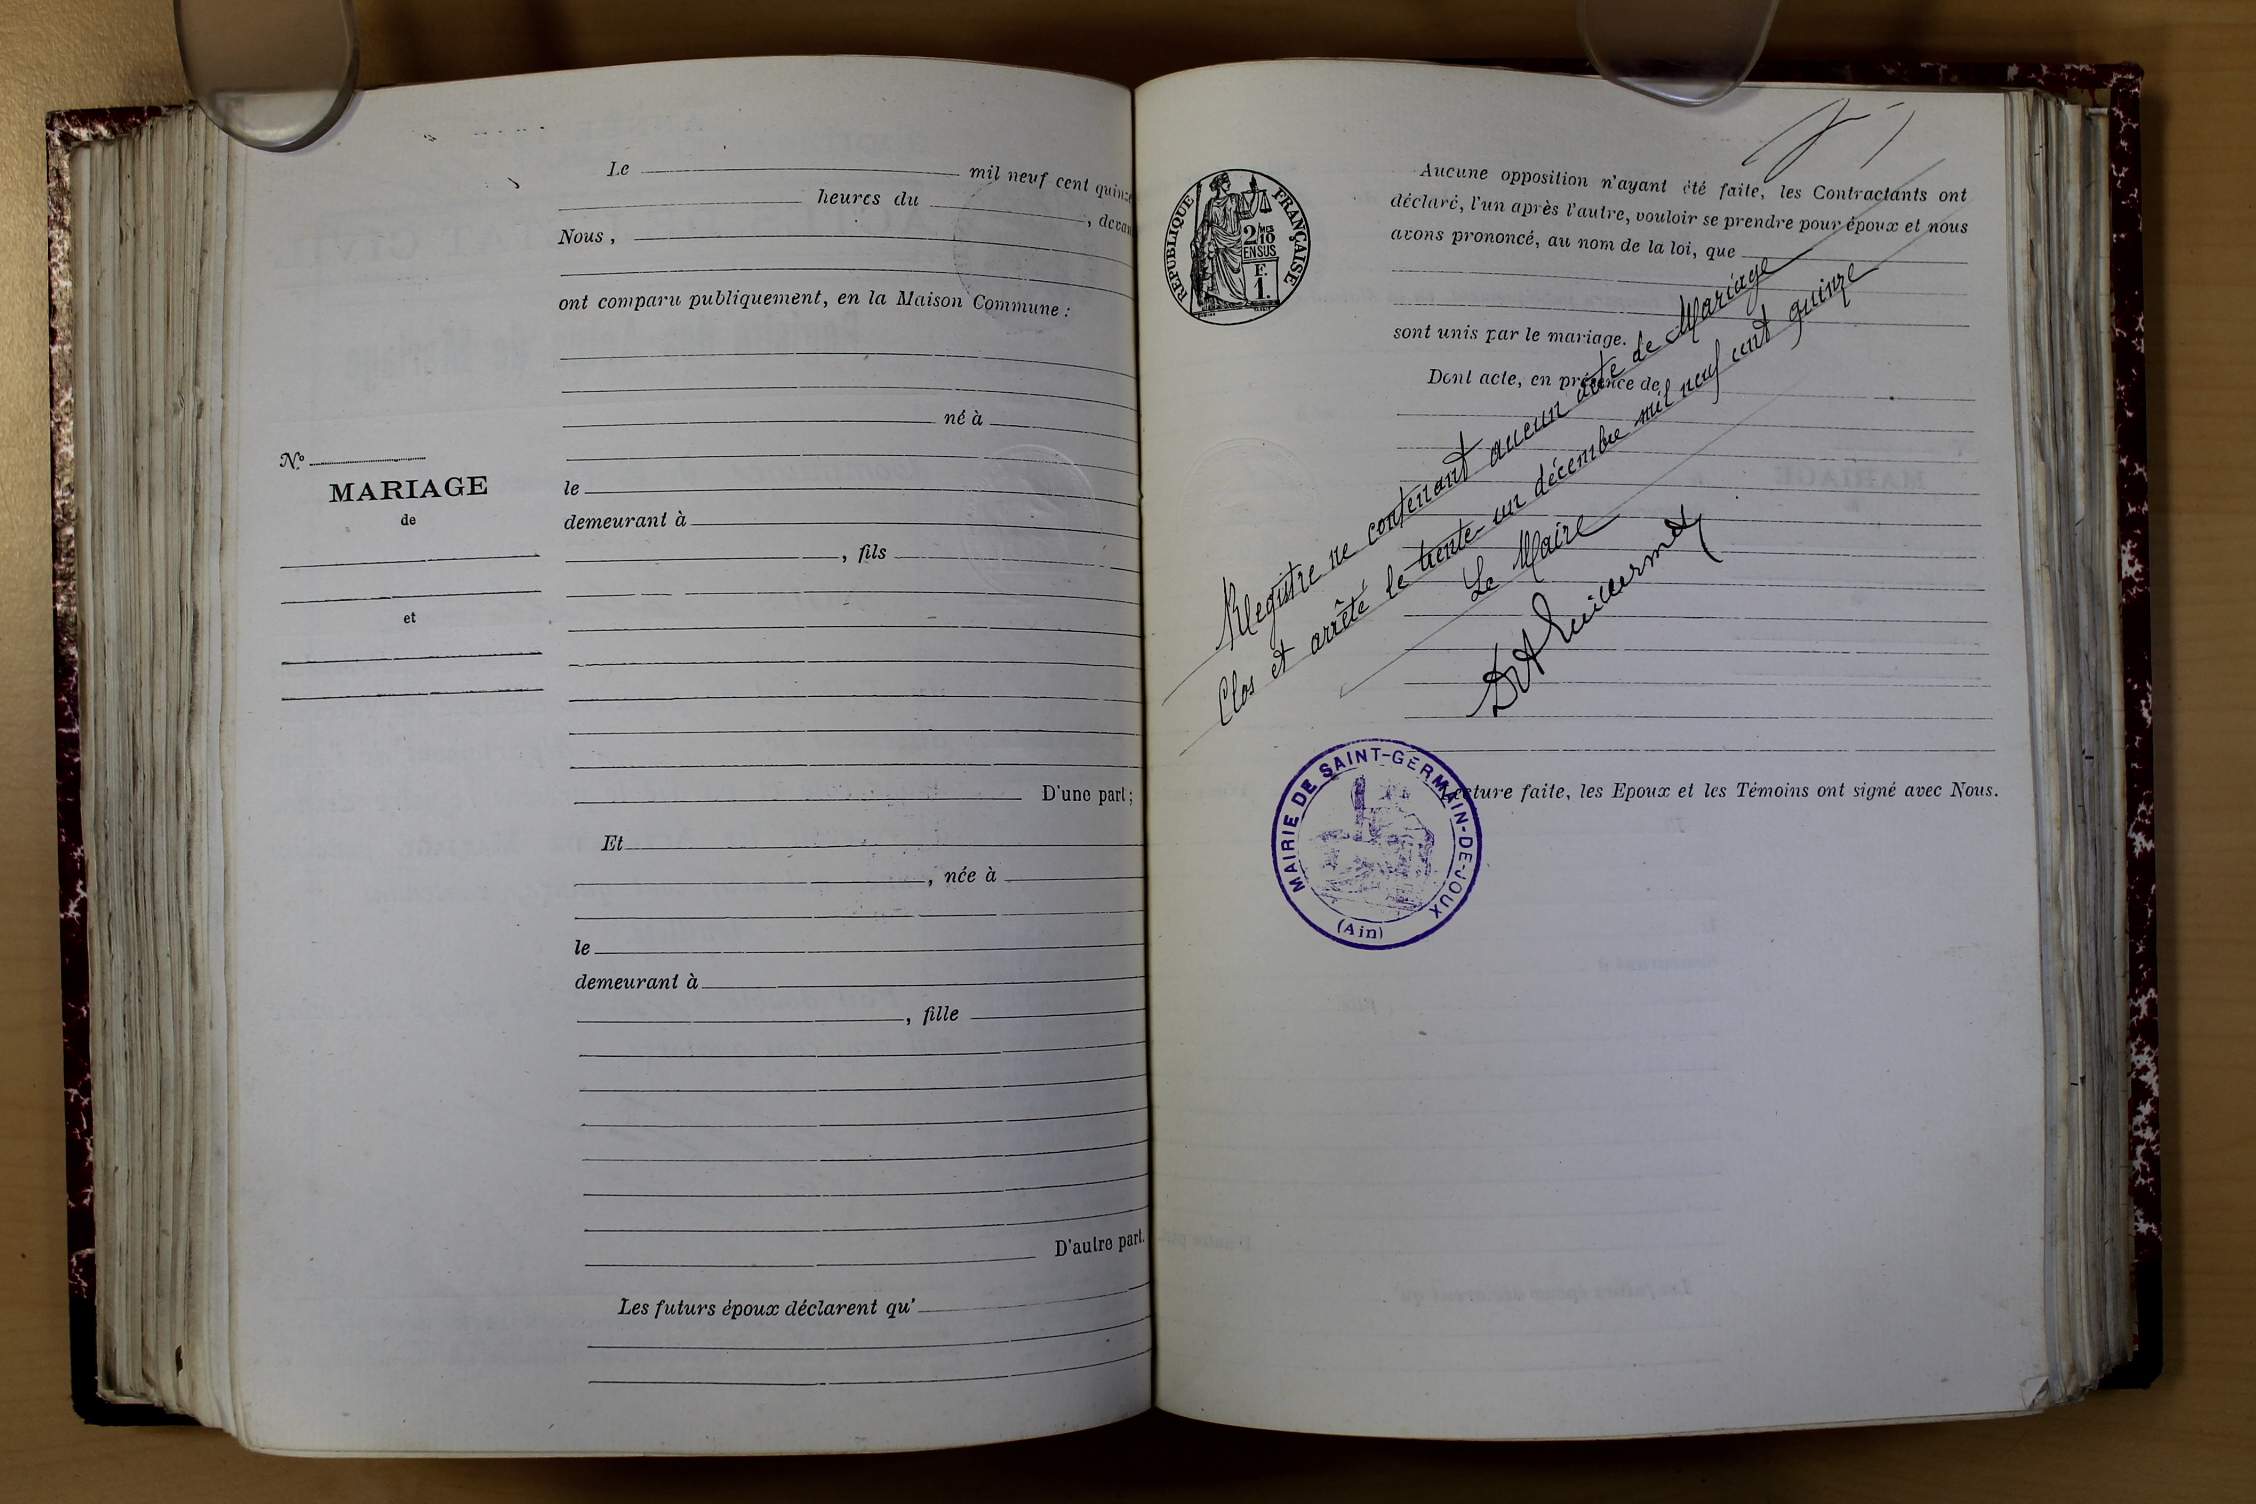 Le mil neuf cent quinze
heures du , devan
Nous ,
ont comparu publiquement, en la Maison Commune :
né à
le
demeurant à
, fils
D'une part ;
Et
, née à
le
demeurant à
, fille
D'autre part.
Les futurs époux déclarent qu'
N.º
MARIAGE
de
et
RÉPUBLIQUE FRANÇAISE
2/10 MES
EN SUS
F.
1.
Aucune opposition n'ayant été faite, les Contractants ont
déclaré, l'un après l'autre, vouloir se prendre pour époux et nous
avons prononcé, au nom de la loi, que
sont unis par le mariage.
Dont acte, en présence de
Registre ne contenant aucun acte de Mariage
Clos et arrêté le trente-un décembre mil neuf cent quinze
Le Maire
Lecture faite, les Epoux et les Témoins ont signé avec Nous.
MAIRIE DE SAINT-GERMAIN-DE-JOUX
(Ain)